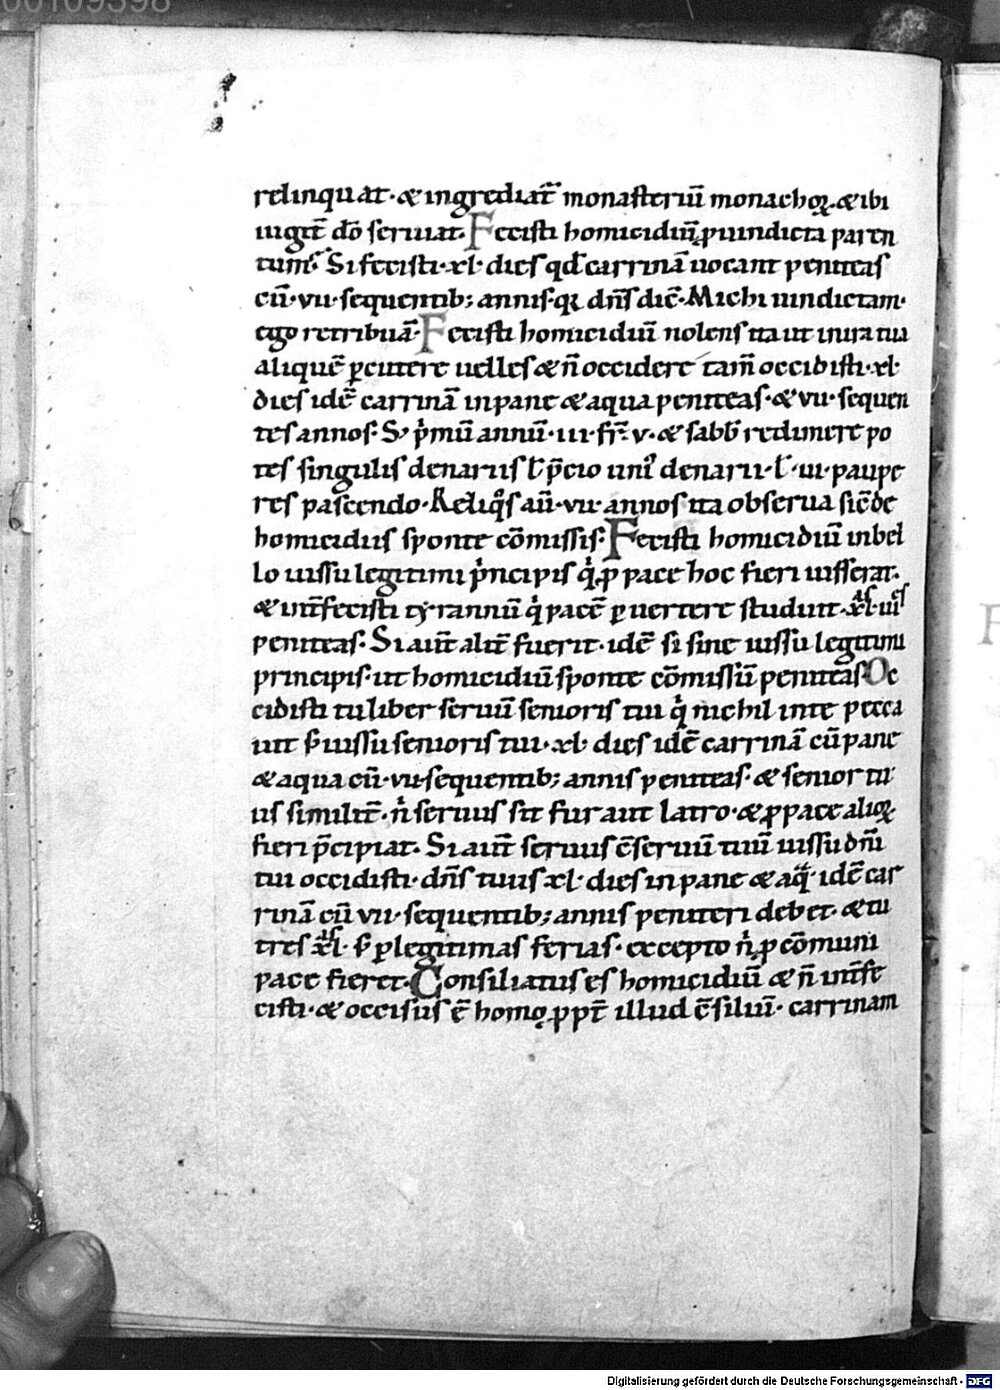 00109398
relinquat· & ingrediat᷑ monasteriū monachoꝝ· & ibi
iugit᷑ dō seruiat· Fecisti homicidiū ꝓ uindicta paren
tum? Si fecisti· xl· dies qđ carrinā uocant peniteas
cū· vii· sequentib; annis· qꝛ dn̄s dic̄· Michi uindictam·
ego retribuā· Fecisti homicidiū nolens ita ut in ira tua
aliquē ꝑcutere uelles & n̄ occidere tam̄ occidisti· xl·
dies idē carrinā in pane & aqua peniteas· & vii· sequen
tes annos· S; p̍mū annū· iii· fr̄· v· & sabb̄ redimere po
tes singulis denariis ł p̄cio uni᷒ denarii· ł· iii· paupe
res pascendo· Reliq̊s aū· vii· annos ita obserua sic̄ de
homicidiis sponte cōmissis· Fecisti homicidiū in bel
lo iussu legitimi p̍ncipis q̍ ꝓ pace hoc fieri iusserat·
& int᷑fecisti tyrannū q̍ pacē ꝑuertere studuit· xl·as iiiˢ
peniteas· Si aut᷑ alit᷑ fuerit· idē si sine iussu legitimi
principis· ut homicidiū sponte cōmissū peniteas· Oc
cidisti tu liber seruū senioris tui q̍ nichil in te pecca
uit s; iussu senioris tui· xl· dies idē carrinā cū pane
& aqua cū· vii· sequentib; annis peniteas· & senior tu
us similit᷑· n̍ seruus sit fur aut latro· & ꝓ pace alioꝝ
fieri p̄cipiat· Si aut᷑ seruus c̄seruū tuū iussu dn̄i
tui occidisti· dn̄s tuus xl· dies in pane & aq̄· idē car
rinā cū vii· sequentib; annis peniteri debet· & tu
tres xl·as s; ꝑ legitimas ferias· excepto n̍ ꝓ cōmuni
pace fieret· Consiliatus es homicidiū & n̄ int᷑fe
cisti· & occisus ē homo ꝓpt᷑ illud c̄siliū· carrinam
Digitalisierung gefördert durch die Deutsche Forschungsgemeinschaft - DFG